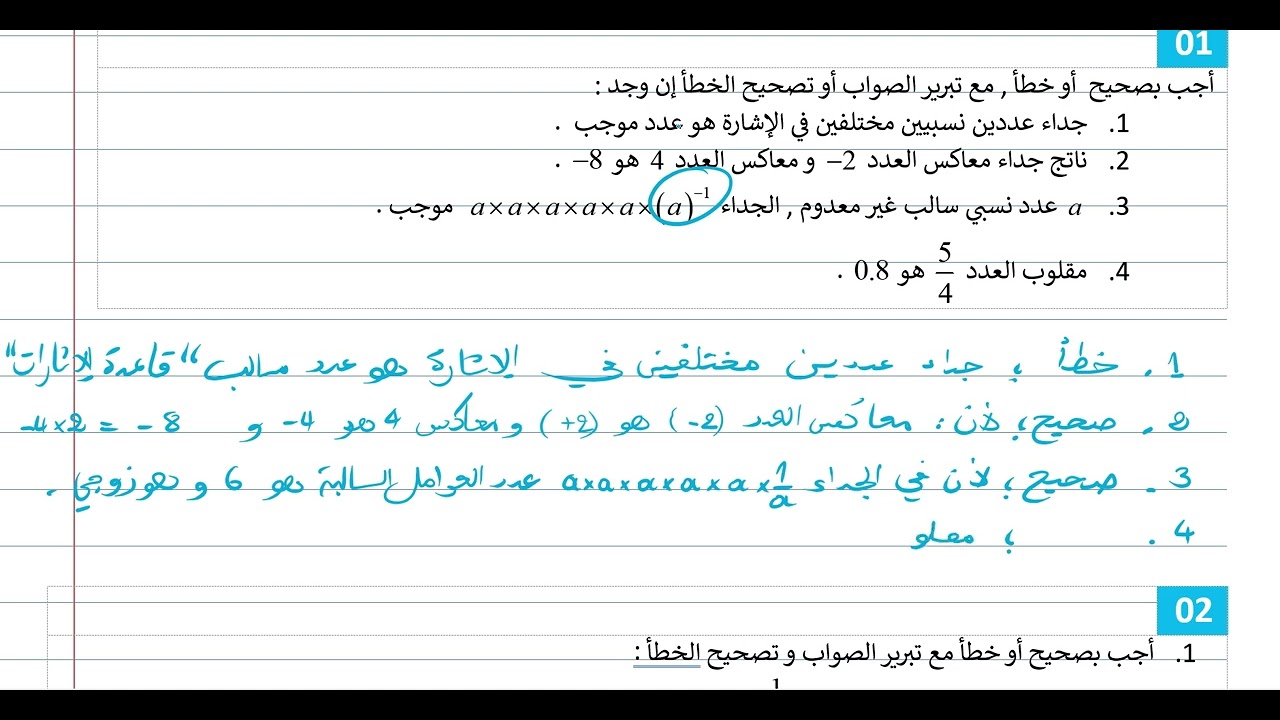 01
أجب بصحيح أو خطأ , مع تبرير الصواب أو تصحيح الخطأ إن وجد :
1. جداء عددين نسبيين مختلفين في الإشارة هو عدد موجب .
2. ناتج جداء معاكس العدد −2 و معاكس العدد 4 هو −8 .
3. a عدد نسبي سالب غير معدوم , الجداء a×a×a×a×a×(a)⁻¹ موجب .
4. مقلوب العدد 5/4 هو 0.8 .
1. خطأ ، جداء عددين مختلفين في الإشارة هو عدد سالب "قاعدة الإشارات"
2. صحيح ، لأن : معاكس العدد (-2) هو (+2) و معاكس 4 هو -4 و -4×2 = -8
3. صحيح ، لأن في الجداء a×a×a×a×a×1/a عدد العوامل السالبة هو 6 و هو زوجي .
4. ، مقلو
02
1. أجب بصحيح أو خطأ مع تبرير الصواب و تصحيح الخطأ :
1